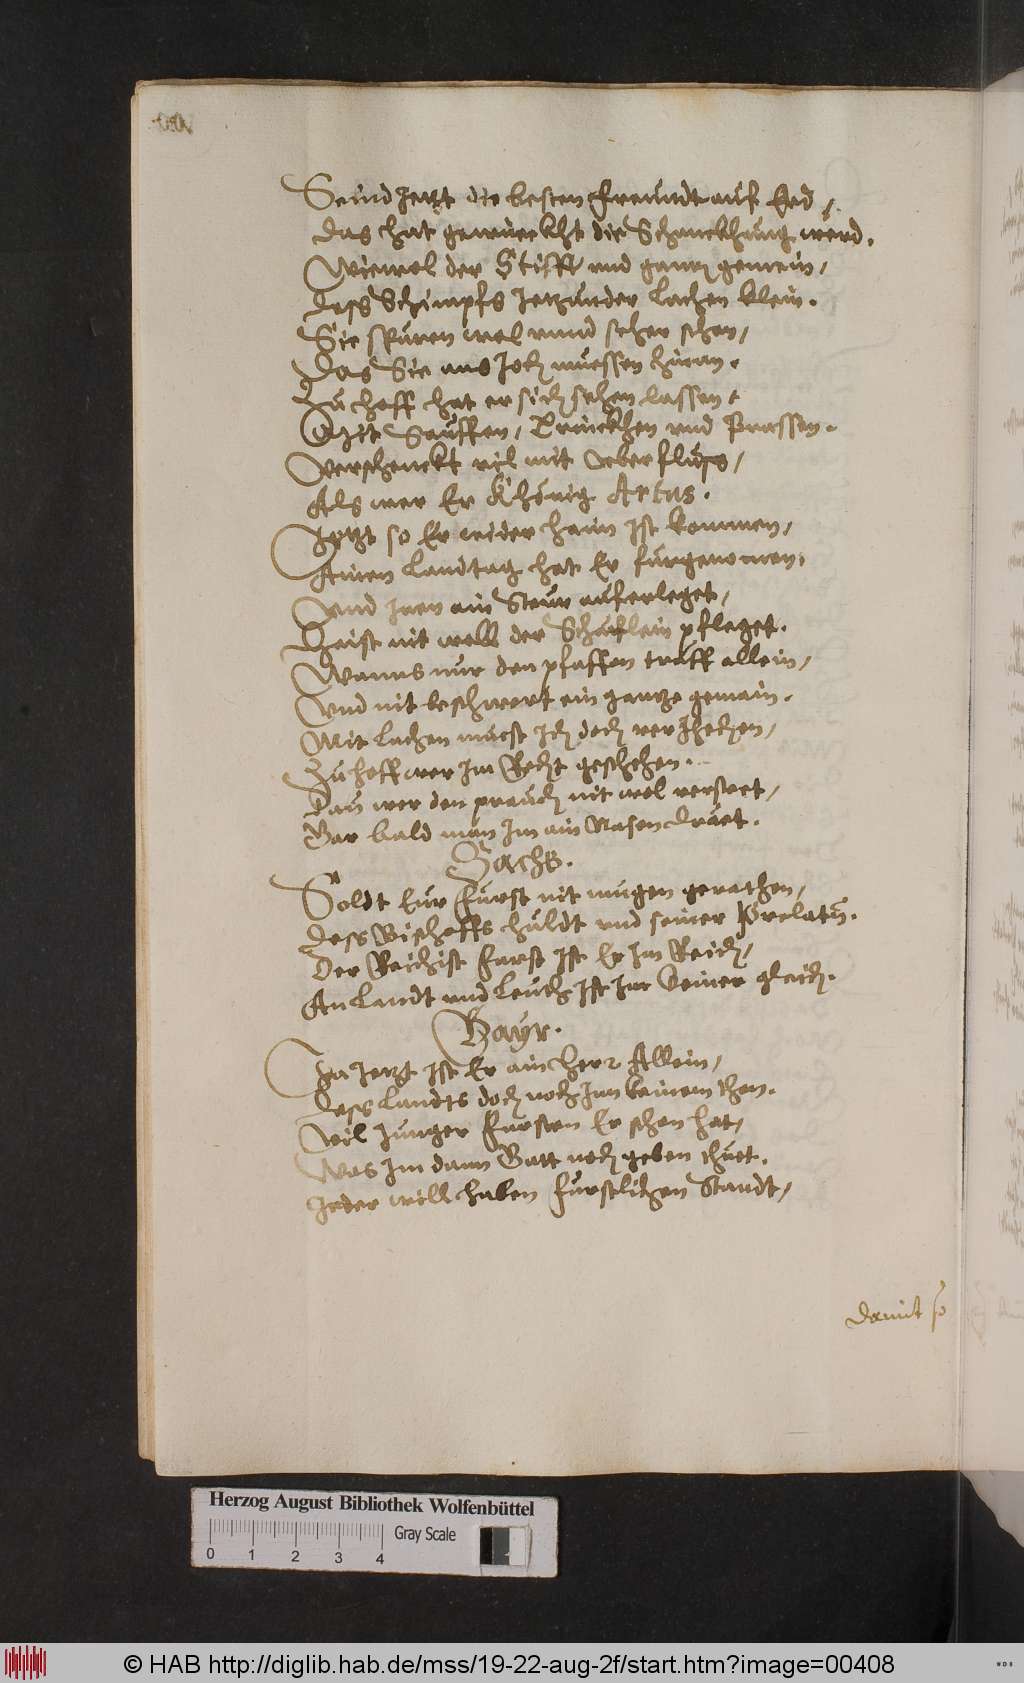 Seind Jetzt die besten freundt auf Erd,
Das hat gewürckht die Schenckhung werd.
Wiewol der Stifft und gantz gemein,
dess Schimpfs Jetzunder lachen klein.
Sie spüren wol unnd seher schon,
Das Sie ans Joch muessen hinan.
Zu hoff hat er sich sehen lassen,
Mit Sauffen, Banckhen und Prassen.
Verschenckt vil mit Ueberfluss,
Als wer Er Khönig Artus.
Jetzt so Er wider haim Ist kommen,
Ainen landtag hat Er furgenomen,
Und Inen ain Steur auferleget,
Haist nit woll der Schäflein pfleget.
Wanns nur den pfaffen träff allein,
Und nit beschwert ein gantze gemain.
Mit lachen muest Ich doch verJhehen,
Zu hoff wer Im Recht geschehen.
Dan wer den prauch nit wol verstet,
Gar bald man Im ain Nasen dräet.
Sachs.
Soldt Eur Fürst nit mugen gerathen,
dess Bischoffs huldt und seiner Prelatn.
Der Reichist Furst Ist Er Im Reich,
An Landt und Leuth Ist Im Keiner gleich.
Bayr.
Ja Jetzt Ist Er ain herr Allein,
dess landts doch noch Inn keinem then.
Vil Junger Fursten Er schon hat,
Was Im dann Gott noch geben thuet.
Jeder will haben furstlichen Standt,
Damit so
Herzog August Bibliothek Wolfenbüttel
Gray Scale
0 1 2 3 4
© HAB http://diglib.hab.de/mss/19-22-aug-2f/start.htm?image=00408